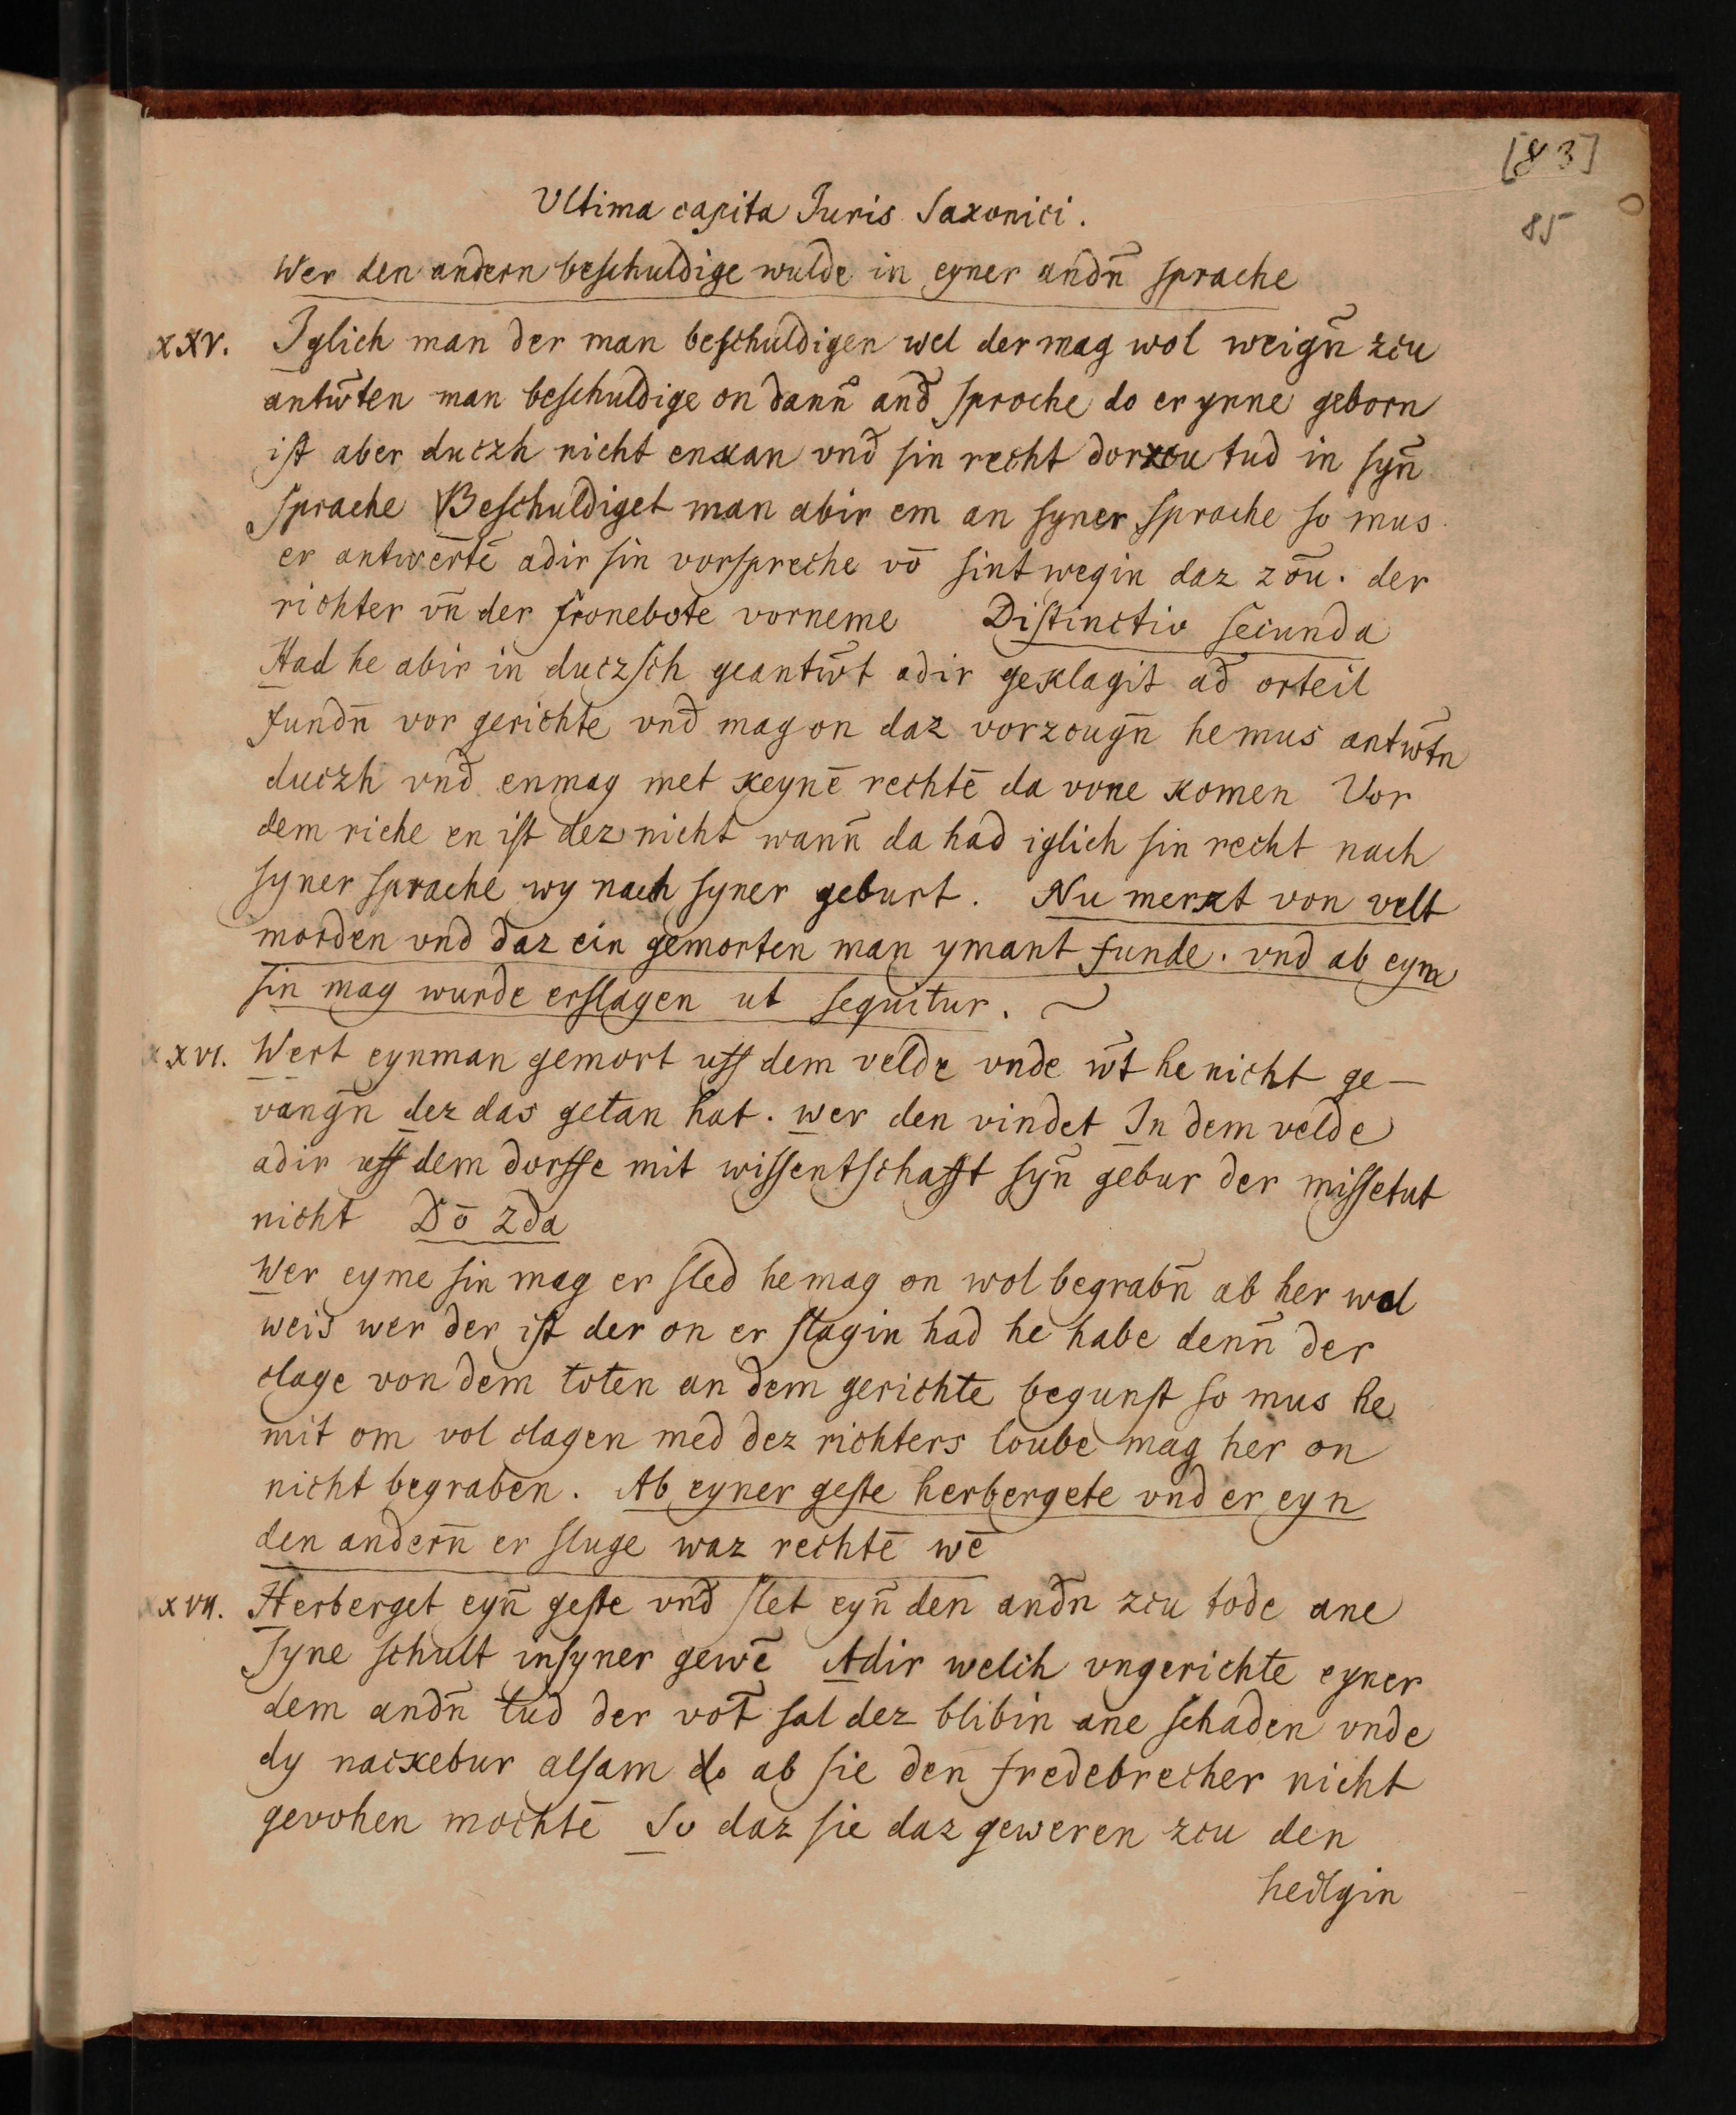 [83]
85
Ultima capita Juris Saxonici.
Wer den andern beschuldige wulde in eyner andn̄ sprache
xxv. Iglich man der man beschuldigen wel der mag wol weign̄ zcu
antw̄ten man beschuldige on dann̄ and̄ sproche do er ynne geborn
ist aber duczh nicht enkan vnd̄ sin recht dorzcu tud in syn̄
sprache Beschuldiget man abir em an syner sprache so mus
er antwertē adir sin vorspreche vō sint wegin daz zōu. der
richter vn̄ der fronebote vorneme Distinctio secunda
Had he abir in duczsch geantw̄t adir geklagit ad̄ orteil
fundn̄ vor gerichte vnd̄ mag on daz vorzougn̄ he mus antw̄tn
duczh vnd̄ enmag met keynē rechtē da vone komen Vor
dem riche en ist dez nicht wann̄ da had iglich sin recht nach
syner sprache wy nach syner geburt. Nu merkt von velt
morden vnd daz ein gemorten man ymant funde. vnd ab eym
sin mag wurde erslagen ut sequitur.
xxvi. Wert eynman gemort uff dem velde vnde w̄t he nicht ge–
vangn̄ dez das getan hat. wer den vindet In dem velde
adir uff dem dorffe mit wissentschafft syn̄ gebur der missetut
nicht Dō 2da
Wer eyme sin mag er sled he mag on wol begrabn̄ ab her wol
weis wer der ist der on er slagin had he habe denn̄ der
clage von dem toten an dem gerichte begunst so mus he
mit om vol clagen med dez richters loube mag her on
nicht begraben. Ab eyner geste herbergete vnd er eyn
den andern̄ er sluge waz rechtē wē
xxvii. Herberget eyn̄ geste vnd̄ slet eyn̄ den andn̄ zcu tode ane
syne schult insyner gewē Adir welch vngerichte eyner
dem andn̄ tud der vot̄ sal dez blibin ane schaden vnde
dy nackebur alsam ab sie den fredebrecher nicht
gevohen mochtē So daz sie daz geweren zcu den
heilgin